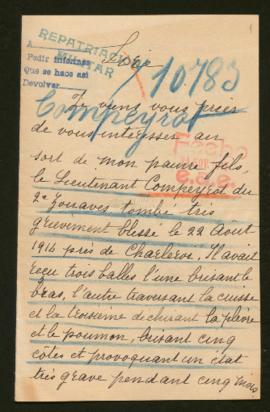 REPATRIACION
MILITAR
A
Pedir informes
Que se hace así
Devolver
Sire
10783
Compeyrot
Je viens vous prier
de vous intéresser au
sort de mon pauvre fils
le Lieutenant Compeyrot du
2e zouaves tombé très
grièvement blessé le 22 Août
1914 près de Charleroi, Il avait
reçu trois balles l'une brisant le
bras, l'autre traversant la cuisse
et la troisième déchirant la plèvre
et le poumon, brisant cinq
côtes et provoquant un état
très grave pendant cinq mois